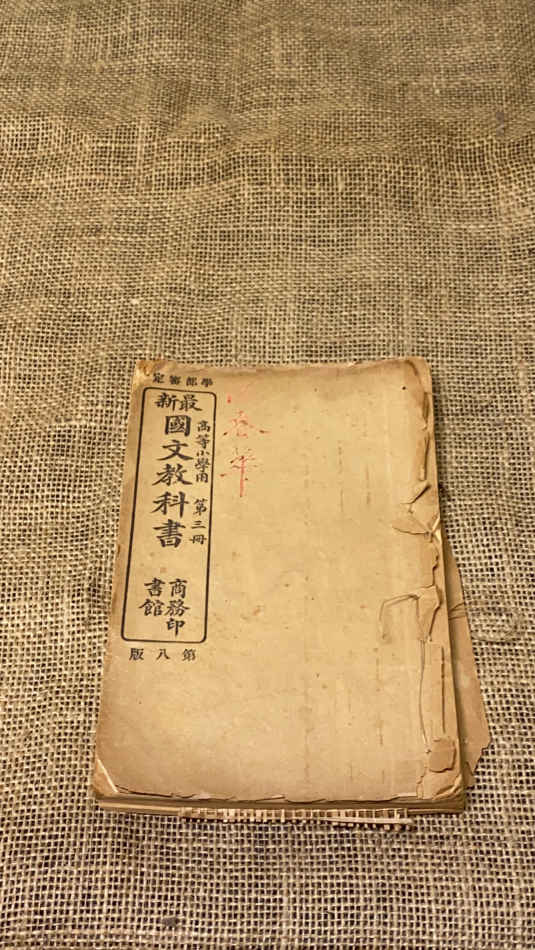 學部審定
最新
高等小學用 第三冊
國文教科書
商務印
書館
第八版